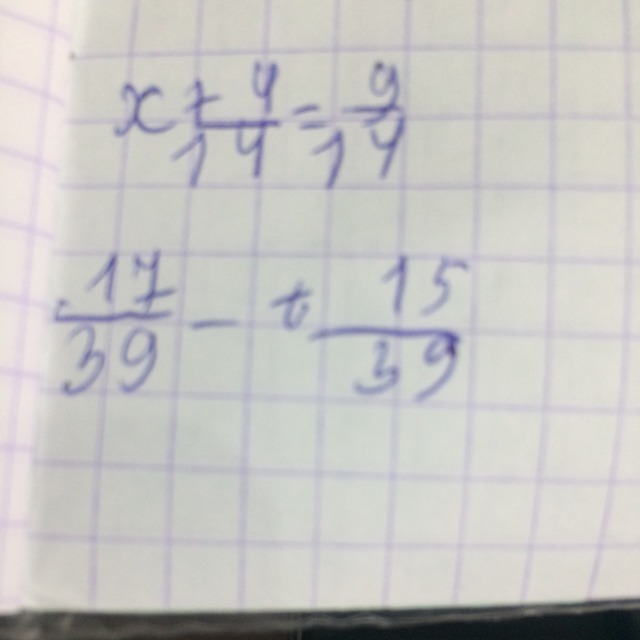 x + 4/14 = 9/14
17/39 - t 15/39